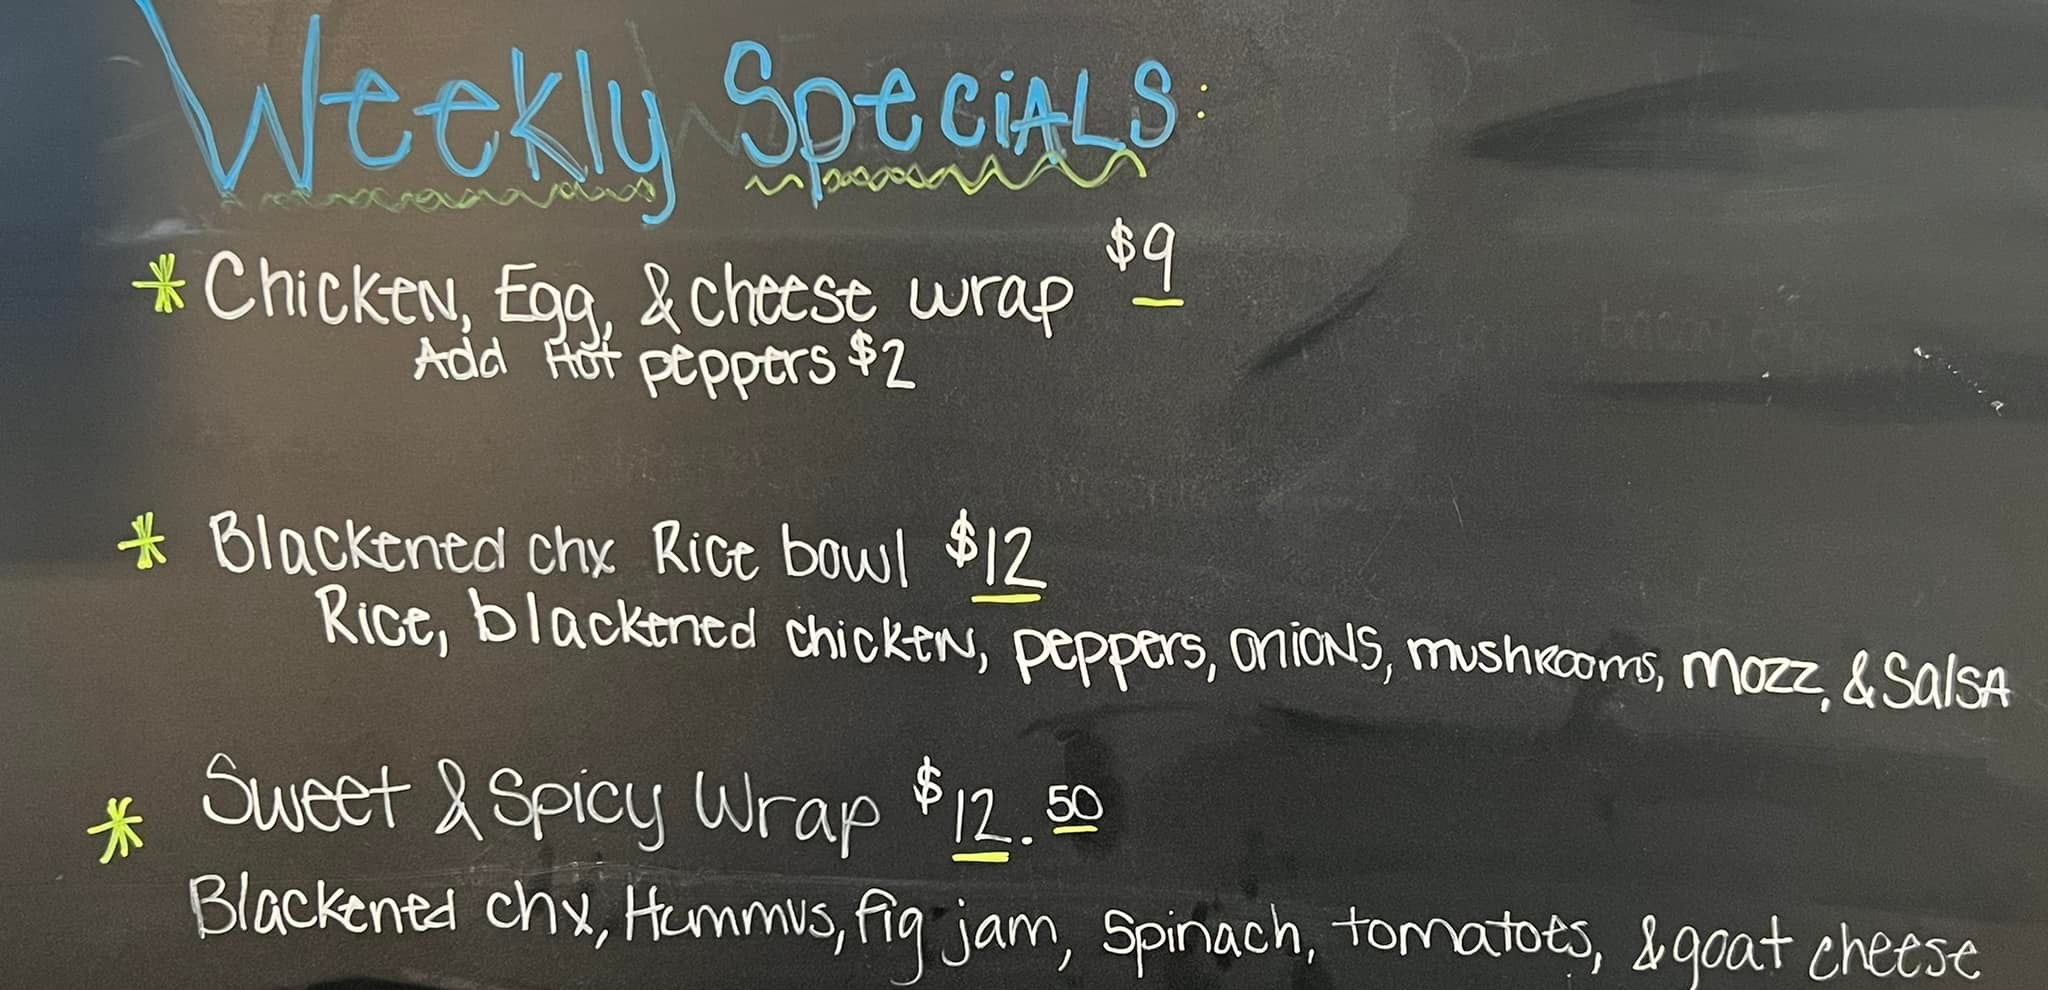 Weekly Specials:
* Chicken, Egg, & cheese wrap $9
Add Hot peppers $2
* Blackened chx Rice bowl $12
Rice, blackened chicken, peppers, onions, mushrooms, mozz, & Salsa
* Sweet & Spicy Wrap $12.50
Blackened chx, Hummus, fig jam, Spinach, tomatoes, & goat cheese